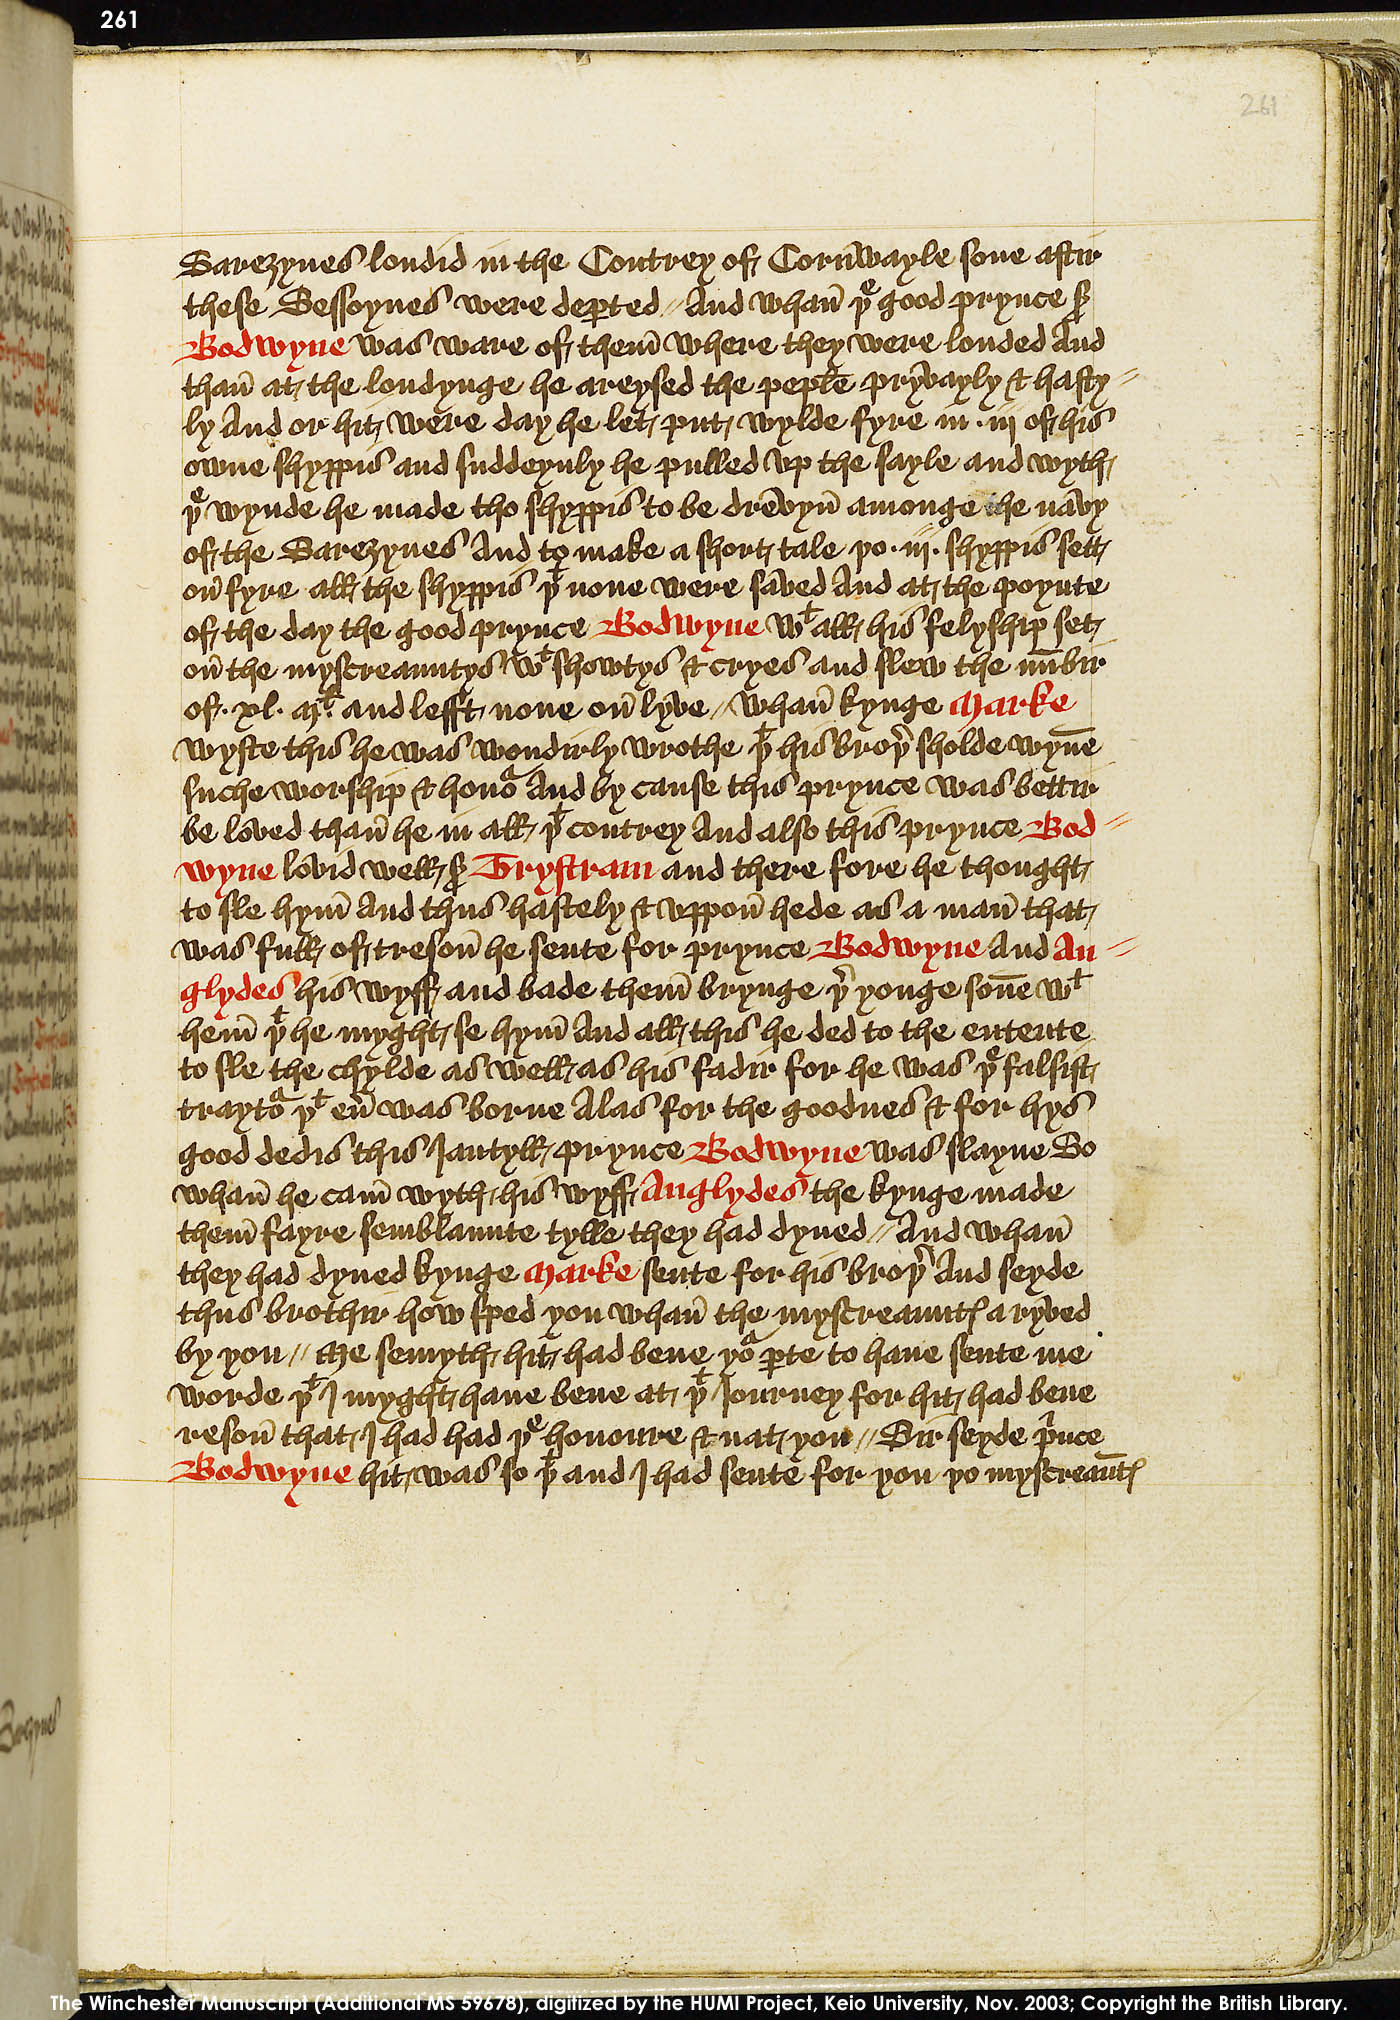 261
261
Sarezynes londid in the Contrey of Cornwayle sone aftir
these Sessoynes were dep̱ted // And whan̄ þᵉ good prynce sʳ
Bodwyne was ware of them̄ where they were londed And
than̄ at the londynge he areysed the peple pryvayly & hasty //
ly And or hit were day he let put wylde fyre in .iij of his
owne shyppis and suddeynly he pulled vp the sayle and wyth
þᵉ wynde he made tho shyppis to be drevyn̄ amonge the navy
of the Sarezynes And to make a short tale þo .iij. shyppis sett
on̄ fyre all the shyppis þᵗ none were saved And at the poynte
of the day the good prynce Bodwyne wᵗ all his felyship set
on̄ the myscreauntys wᵗ showtys & cryes and slew the nūbir
of .xl. Mˡ. and lefft none on̄ lyve // Whan̄ kynge Marke
wyste this he was wondirly wrothe þᵗ his broþʳ sholde wyn̄e
suche worship & honoʳ And by cause this prynce was bettir
be loved than̄ he in all þᵗ contrey And also this prynce Bod //
wyne lovid well sʳ Trystram and there fore he thought
to sle hym̄ And thus hastely & vppon̄ hede as a man̄ that
was full of treson̄ he sente for prynce Bodwyne And An //
glydes his wyff and bade them̄ brynge þʳ yonge son̄e wᵗ
hem̄ þᵗ he myght se hym̄ And all this he ded to the entente
to sle the chylde as well as his fadir for he was þᵉ falsist
traytoʳ þᵗ eu̾ was borne Alas for the goodnes & for hys
good dedis this Jantyll prynce Bodwyne was slayne So
whan̄ he cam̄ wyth his wyff Anglydes the kynge made
them̄ fayre semblaunte tylle they had dyned // And whan̄
they had dyned kynge Marke sente for his broþʳ And seyde
thus brothir how sped you whan̄ the myscreauntꝭ aryved
by you // Me semyth hit had bene yoʳ p̱te to haue sente me
worde þᵗ I myght haue bene at þᵗ Journey for hit had bene
reson̄ that I had had þᵉ honoure & nat you // Sir seyde pⁱnce
Bodwyne hit was so þᵗ and I had sente for you þo myscreaūtꝭ
Sarezynes
The Winchester Manuscript (Additional MS 59678), digitized by the HUMI Project, Keio University, Nov. 2003; Copyright the British Library.